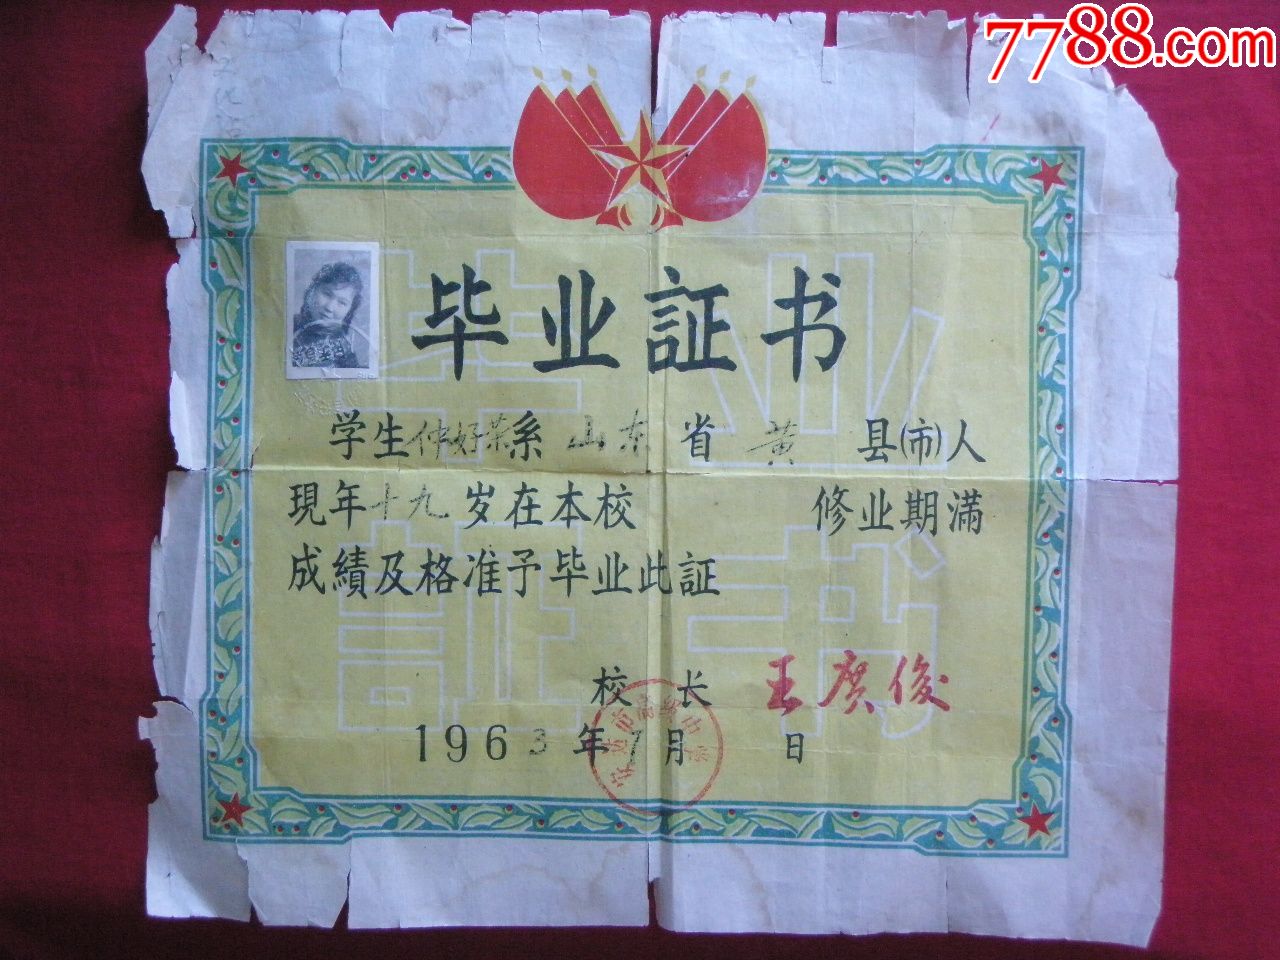 7788.com
毕业証书
学生仲好荣系山东省黄县(市)人
現年十九岁在本校 修业期滿
成績及格准予毕业此証
校长 王广俊
1963年7月 日